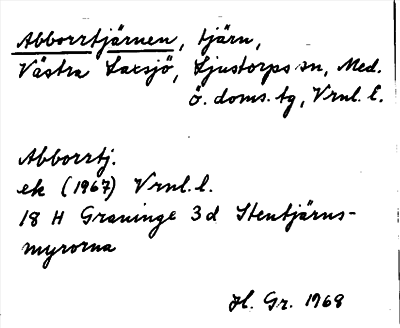 Abborrtjärnen, tjärn,
Västra Laxsjö, Ljustorps sn, Med.
ö. doms. tg, Vrnl. l.
Abborrtj.
ek (1967) Vrnl. l.
18 H Graninge 3 d Stentjärns-
myrorna
Hl. Gr. 1968